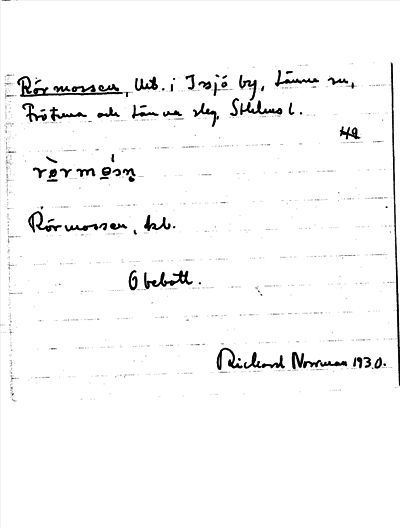 Rörmossen, Utb. i Isjö by, Länna sn,
Frötuna och Länna slg, Sthlms l.
rørmosn
Rörmossen, kb.
Obebott.
Rickard Norrman 1930.